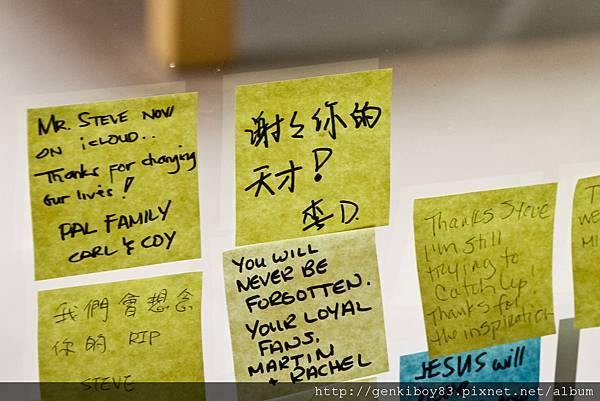 MR. STEVE NOW
ON iCLOUD..
Thanks for changing
our lives!
PAL FAMILY
CARL & COY
谢谢你的
天才!
李 D.
我們會想念
你的 RIP
STEVE
YOU WILL
NEVER BE
FORGOTTEN.
YOUR LOYAL
FANS,
MARTIN
+ RACHEL
Thanks Steve
I'm still
trying to
Catch up!
Thanks for
the inspiration
JESUS will
http://genkiboy83.pixnet.net/album